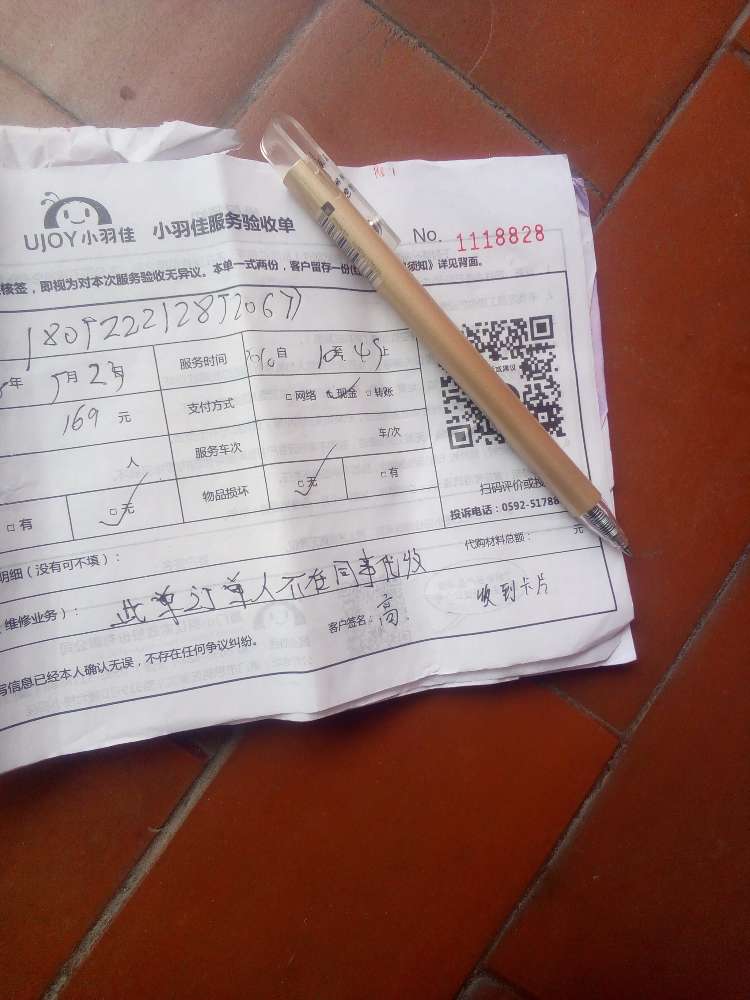 UJOY 小羽佳 小羽佳服务验收单 No. 1118828
核签，即视为对本次服务验收无异议。本单一式两份，客户留存一份 须知》详见背面。
年 5月2号 服务时间 自 10至 45止
169 元 支付方式 □网络 □现金 □转账
人 服务车次 车/次
□有 □无 物品损坏 □无 □有
扫码评价或投
投诉电话：0592-5178
明细（没有可不填）： 代购材料总额： 元
维修业务）： 此单订单人不在同事代收
客户签名： 高 收到卡片
信息已经本人确认无误，不存在任何争议纠纷。